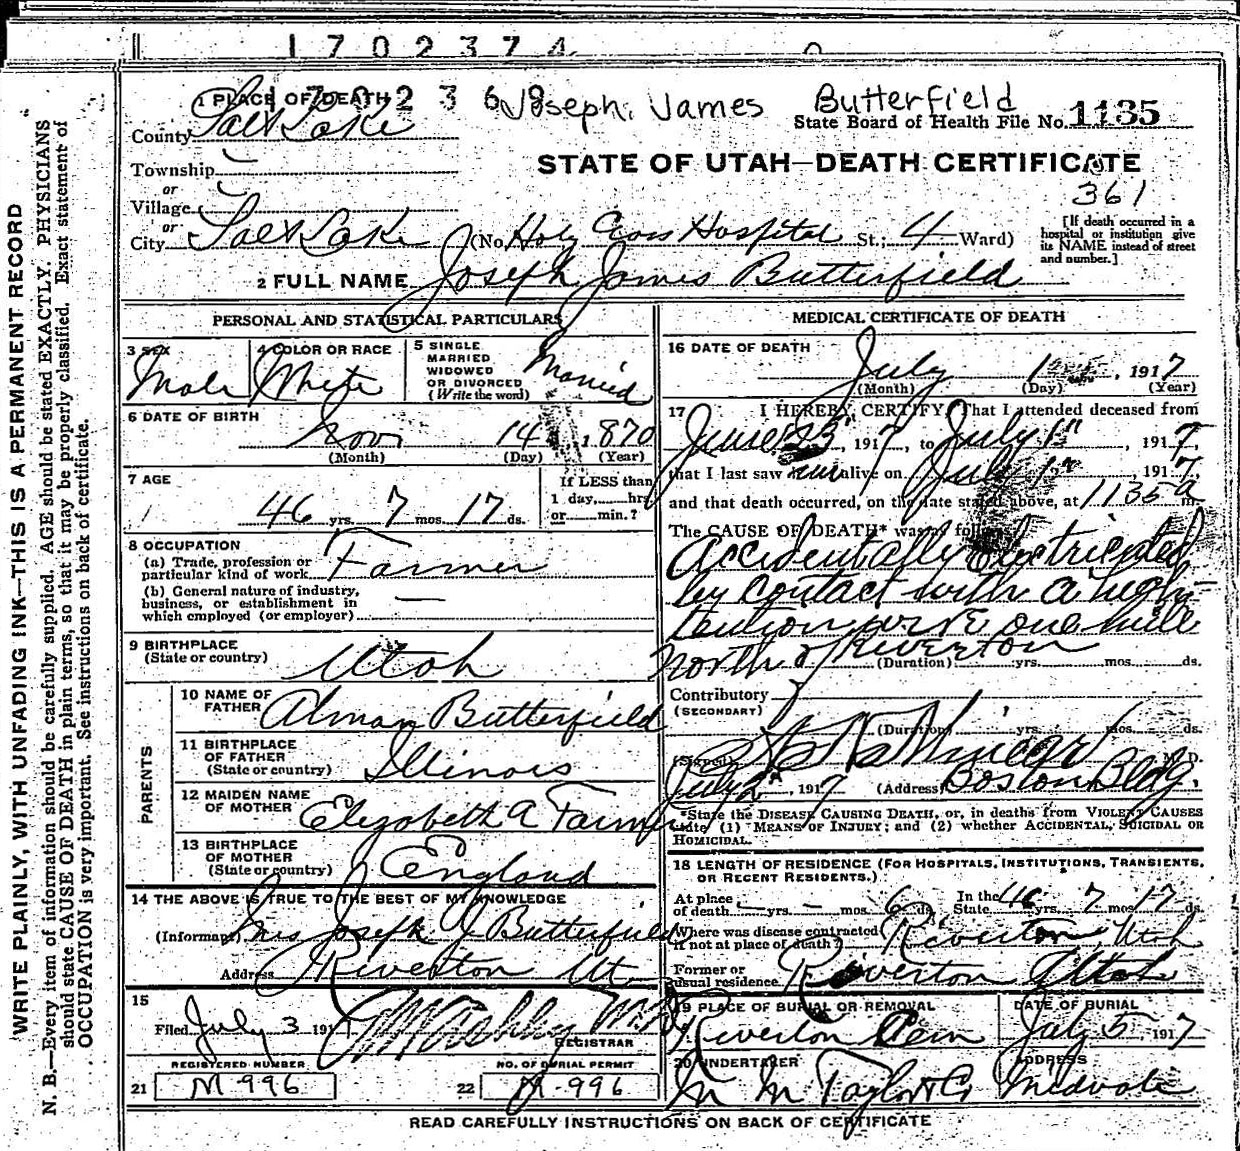 1702374
1702368
Joseph. James Butterfield
State Board of Health File No. 1135
STATE OF UTAH—DEATH CERTIFICATE
361
1 PLACE OF DEATH
County Salt Lake
Township
or
Village
or
City Salt Lake (No. Holy Cross Hospital St.; 4 Ward)
[If death occurred in a hospital or institution give its NAME instead of street and number.]
2 FULL NAME Joseph James Butterfield
PERSONAL AND STATISTICAL PARTICULARS
3 SEX Male
4 COLOR OR RACE White
5 SINGLE MARRIED WIDOWED OR DIVORCED (Write the word) Married
6 DATE OF BIRTH
Nov 14, 1870
(Month) (Day) (Year)
7 AGE
46 yrs. 7 mos. 17 ds.
If LESS than 1 day, hrs. or min.?
8 OCCUPATION
(a) Trade, profession or particular kind of work Farmer
(b) General nature of industry, business, or establishment in which employed (or employer) —
9 BIRTHPLACE (State or country) Utah
PARENTS
10 NAME OF FATHER Alman Butterfield
11 BIRTHPLACE OF FATHER (State or country) Illinois
12 MAIDEN NAME OF MOTHER Elizabeth A Farmer
13 BIRTHPLACE OF MOTHER (State or country) England
14 THE ABOVE IS TRUE TO THE BEST OF MY KNOWLEDGE
(Informant) Mrs Joseph J Butterfield
Address Riverton Ut
15
Filed July 3 1917
REGISTRAR
REGISTERED NUMBER
21 M 996
NO. OF BURIAL PERMIT
22 M-996
MEDICAL CERTIFICATE OF DEATH
16 DATE OF DEATH
July 1, 1917
(Month) (Day) (Year)
17 I HEREBY CERTIFY, That I attended deceased from
June 25, 1917, to July 1", 1917,
that I last saw him alive on July 1", 1917,
and that death occurred, on the date stated above, at 1135 a m.
The CAUSE OF DEATH* was as follows:
Accidentally Electricuted
by contact with a high-
tention wire one mile
north of Riverton
(Duration) yrs. mos. ds.
Contributory
(SECONDARY)
(Duration) yrs. mos. ds.
(Signed) M. D.
July 2", 1917 (Address) Boston Bldg,
*State the DISEASE CAUSING DEATH, or, in deaths from VIOLENT CAUSES state (1) MEANS OF INJURY; and (2) whether ACCIDENTAL, SUICIDAL OR HOMICIDAL.
18 LENGTH OF RESIDENCE (FOR HOSPITALS, INSTITUTIONS, TRANSIENTS, OR RECENT RESIDENTS.)
At place of death — yrs. — mos. 6 ds. In the State 46 yrs. 7 mos. 17 ds.
Where was disease contracted if not at place of death? Riverton, Utah
Former or usual residence Riverton Utah
19 PLACE OF BURIAL OR REMOVAL
Riverton Cem
DATE OF BURIAL
July 5, 1917
20 UNDERTAKER
ADDRESS
Midvale
READ CAREFULLY INSTRUCTIONS ON BACK OF CERTIFICATE
WRITE PLAINLY, WITH UNFADING INK—THIS IS A PERMANENT RECORD
N. B.—Every item of information should be carefully supplied. AGE should be stated EXACTLY. PHYSICIANS
should state CAUSE OF DEATH in plain terms, so that it may be properly classified. Exact statement of
OCCUPATION is very important. See instructions on back of certificate.